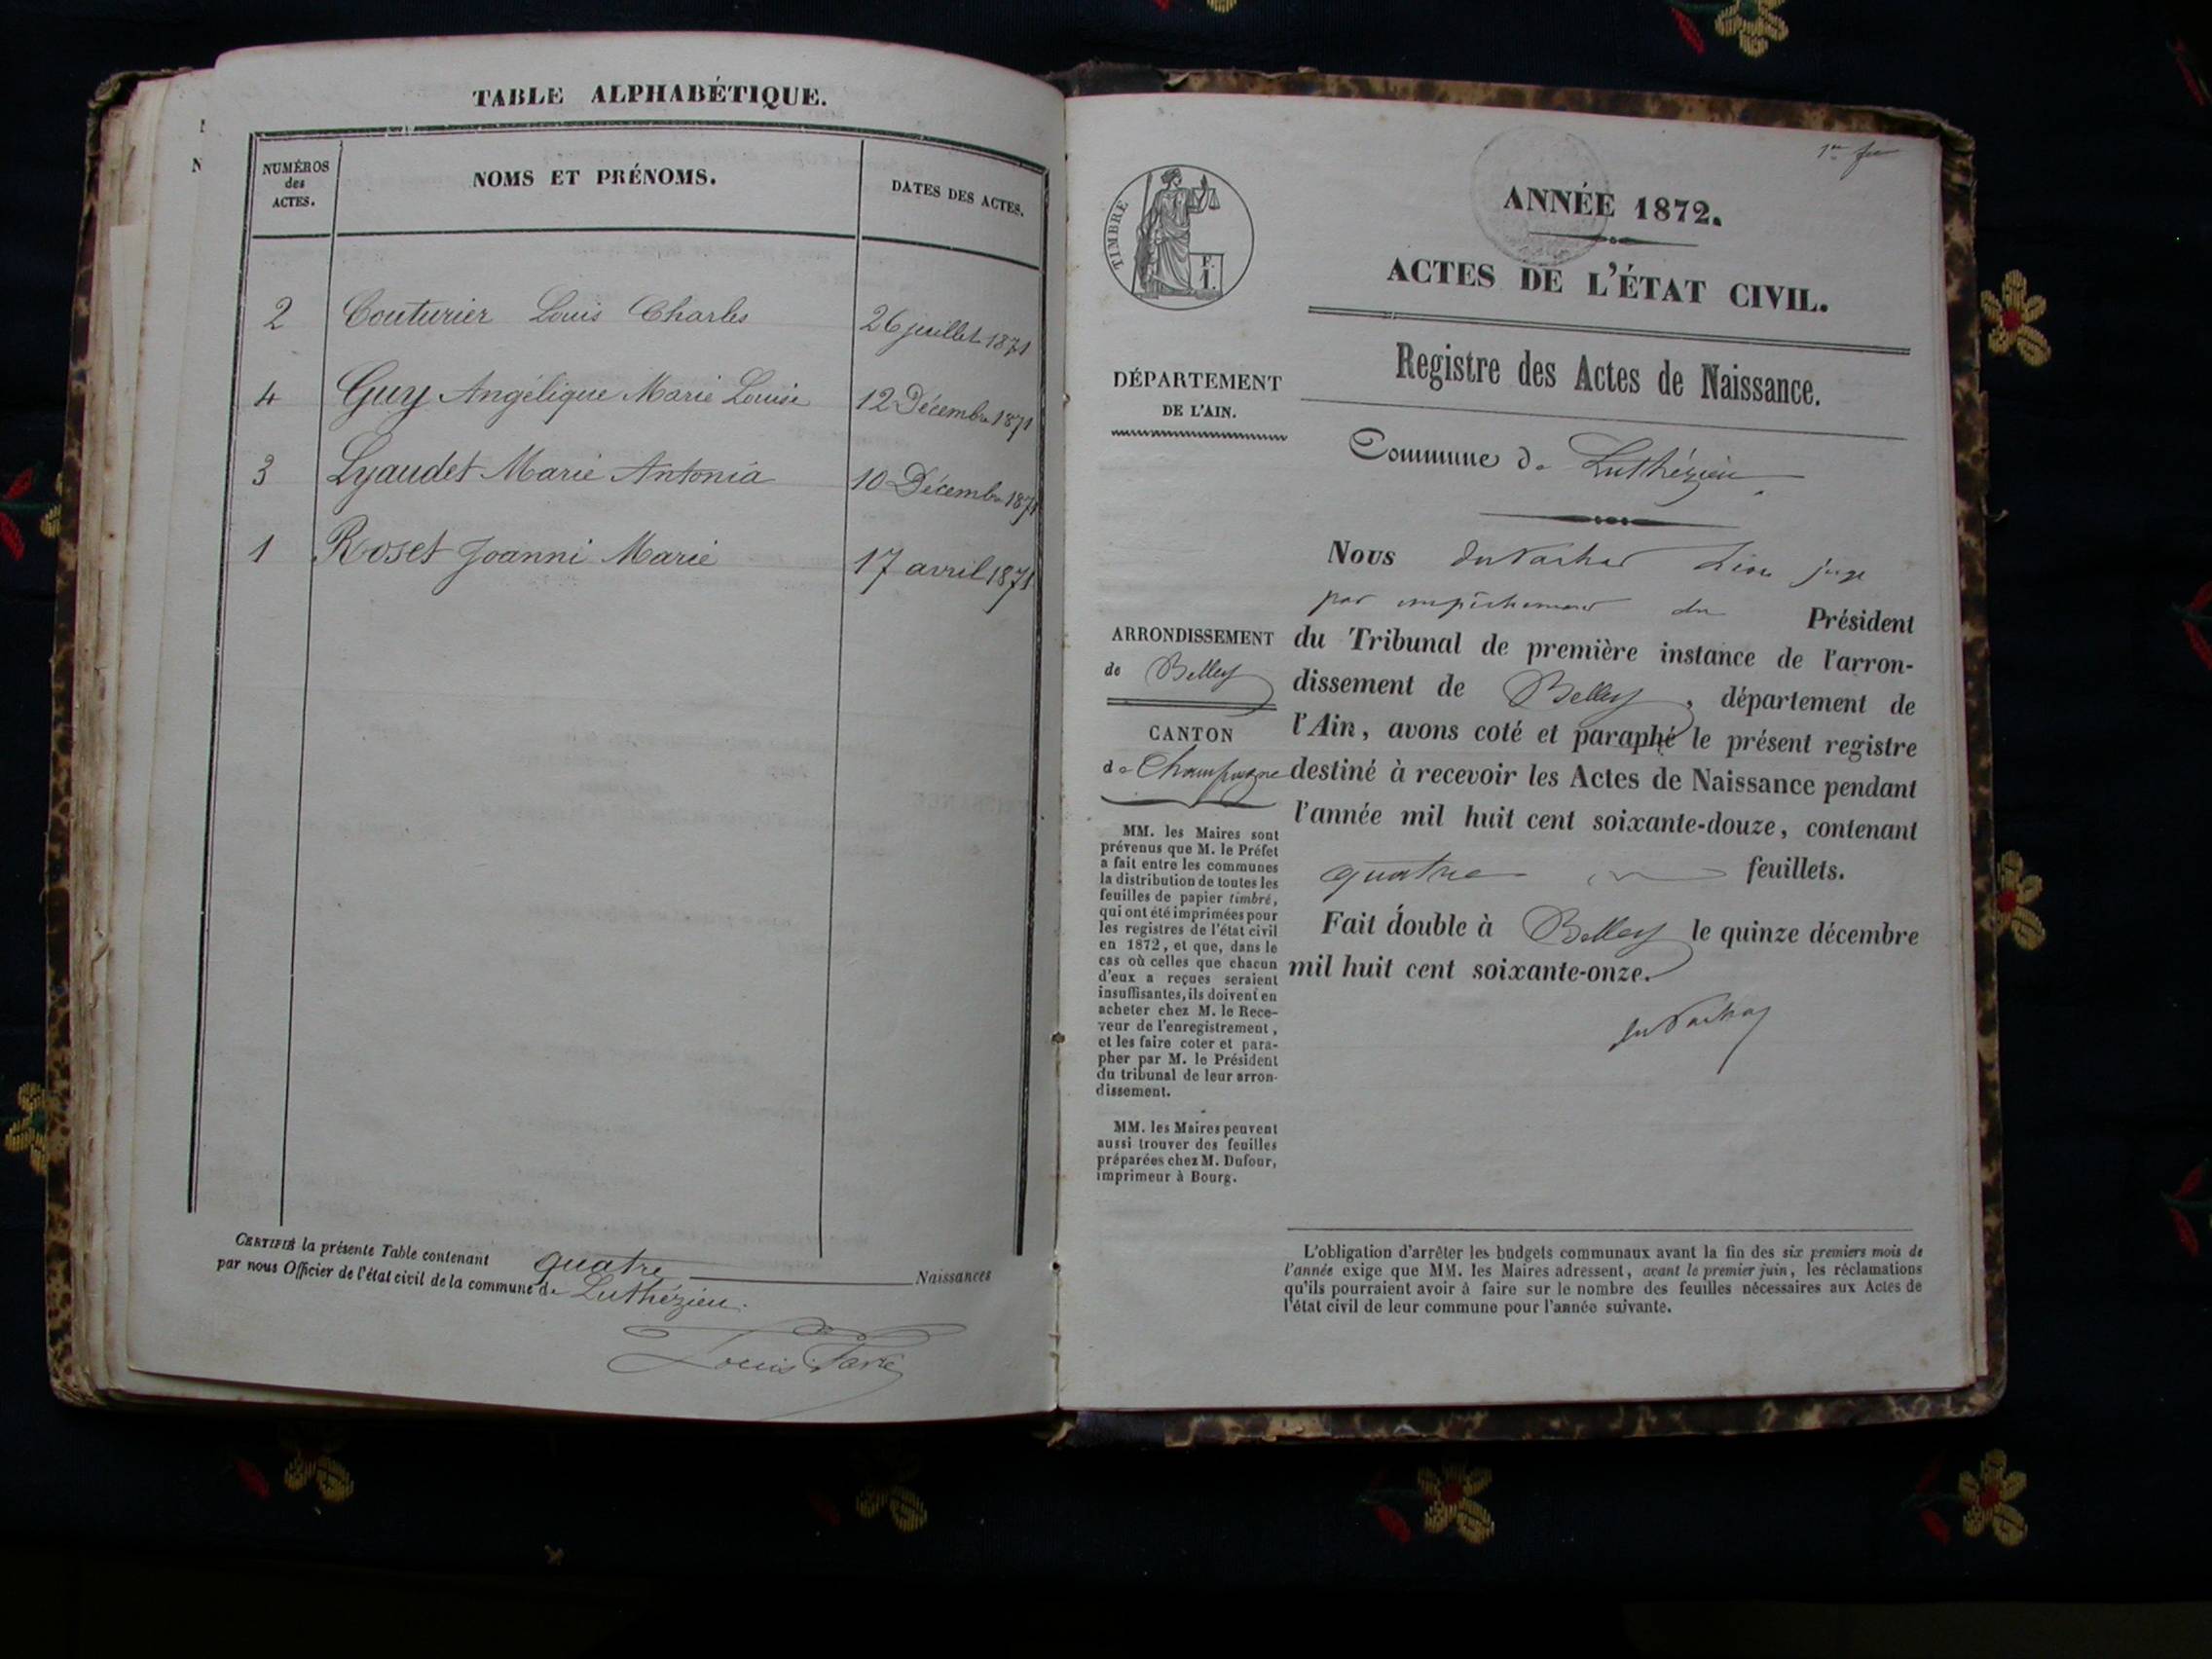 TABLE ALPHABÉTIQUE.
NUMÉROS
des
ACTES.
NOMS ET PRÉNOMS.
DATES DES ACTES.
2 Couturier Louis Charles 26 juillet 1871
4 Guy Angélique Marie Louise 12 Décembre 1871
3 Lyaudet Marie Antonia 10 Décembre 1871
1 Roset Joanni Marie 17 avril 1871
CERTIFIÉ la présente Table contenant quatre Naissances
par nous Officier de l'état civil de la commune de Luthézieu.
Louis
TIMBRE
F.
1.
DÉPARTEMENT
DE L'AIN.
ARRONDISSEMENT
de Belley
CANTON
de Champagne
MM. les Maires sont
prévenus que M. le Préfet
a fait entre les communes
la distribution de toutes les
feuilles de papier timbré,
qui ont été imprimées pour
les registres de l'état civil
en 1872, et que, dans le
cas où celles que chacun
d'eux a reçues seraient
insuffisantes, ils doivent en
acheter chez M. le Rece-
veur de l'enregistrement,
et les faire coter et para-
pher par M. le Président
du tribunal de leur arron-
dissement.
MM. les Maires peuvent
aussi trouver des feuilles
préparées chez M. Dufour,
imprimeur à Bourg.
1er
ANNÉE 1872.
ACTES DE L'ÉTAT CIVIL.
Registre des Actes de Naissance.
Commune de Luthézieu
Nous Léon juge
par empêchement du Président
du Tribunal de première instance de l'arron-
dissement de Belley, département de
l'Ain, avons coté et paraphé le présent registre
destiné à recevoir les Actes de Naissance pendant
l'année mil huit cent soixante-douze, contenant
quatre feuillets.
Fait double à Belley le quinze décembre
mil huit cent soixante-onze.
L'obligation d'arrêter les budgets communaux avant la fin des six premiers mois de
l'année exige que MM. les Maires adressent, avant le premier juin, les réclamations
qu'ils pourraient avoir à faire sur le nombre des feuilles nécessaires aux Actes de
l'état civil de leur commune pour l'année suivante.